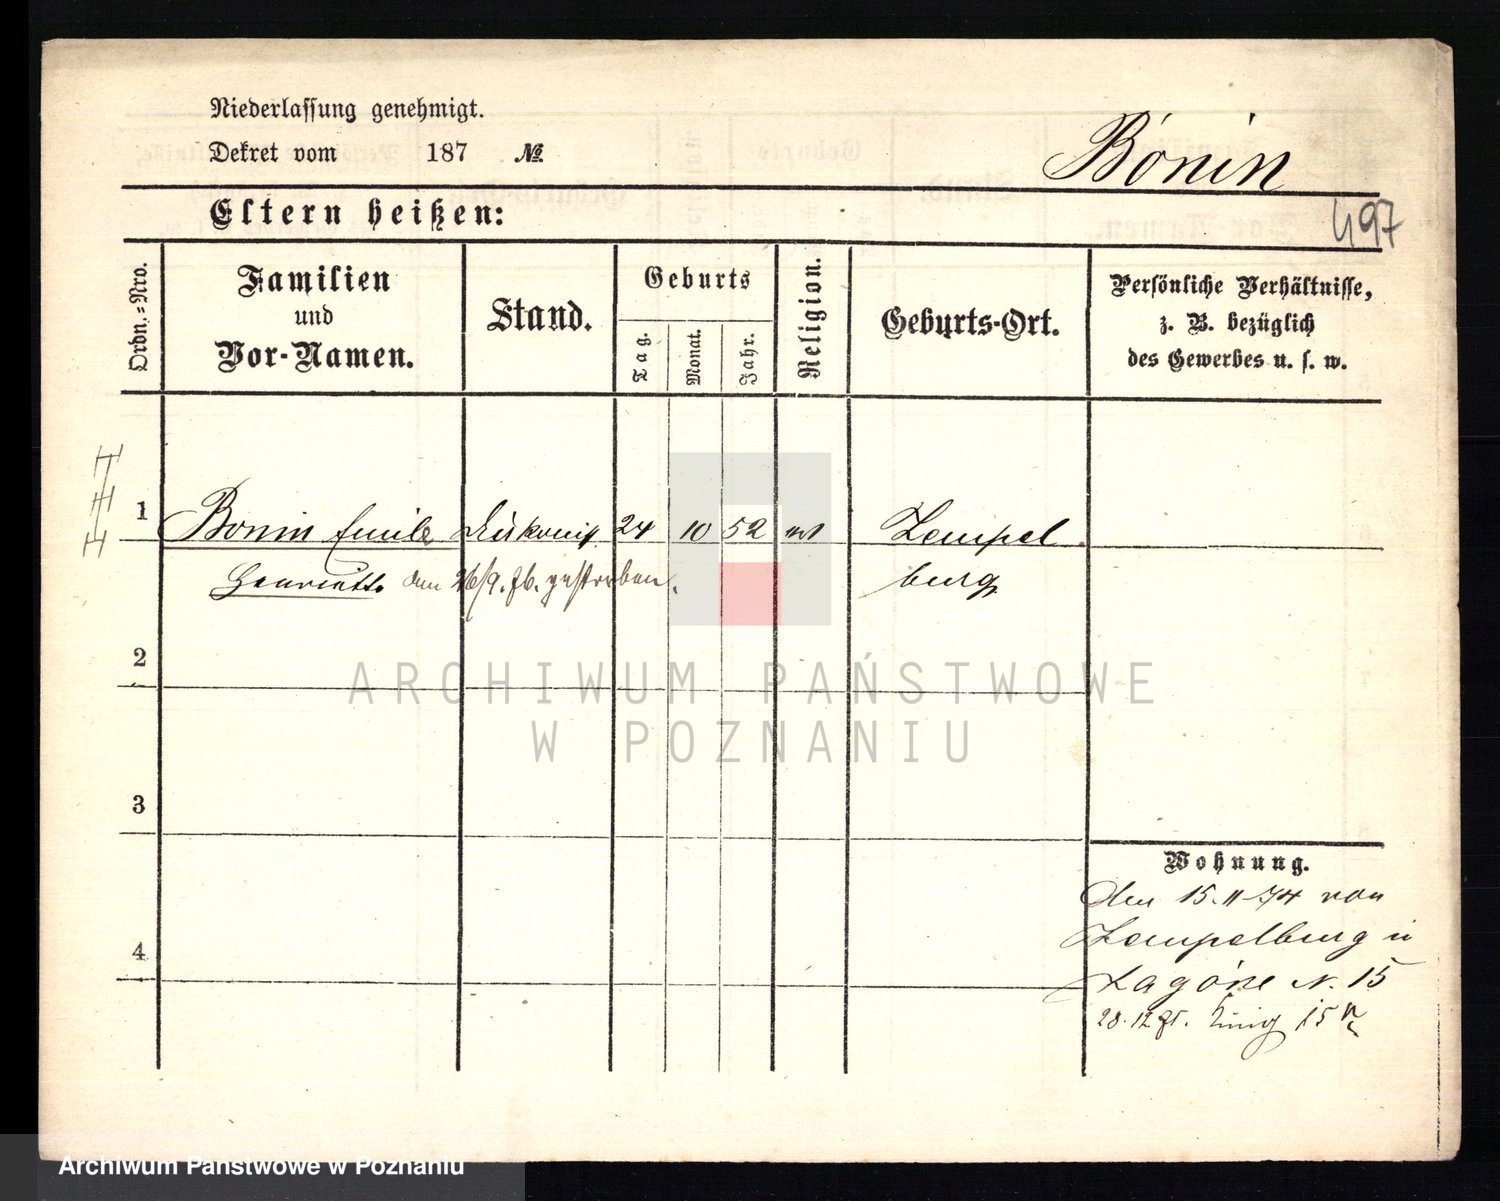 Niederlassung genehmigt.
Dekret vom 187 №
Bonin
497
Eltern heißen:
Ordn.-Nro.
Familien
und
Vor-Namen.
Stand.
Geburts
Tag.
Monat.
Jahr.
Religion.
Geburts-Ort.
Persönliche Verhältnisse,
z. B. bezüglich
des Gewerbes u. s. w.
1 Bonin Emilie 24 10 52 Zempel
Henriette den 26/9. 76. gestorben. burg
2
ARCHIWUM PAŃSTWOWE
W POZNANIU
3
Wohnung.
den 15. 11 74 von
Zempelburg in
4
Zagórze N. 15
28. 12 15
Archiwum Państwowe w Poznaniu